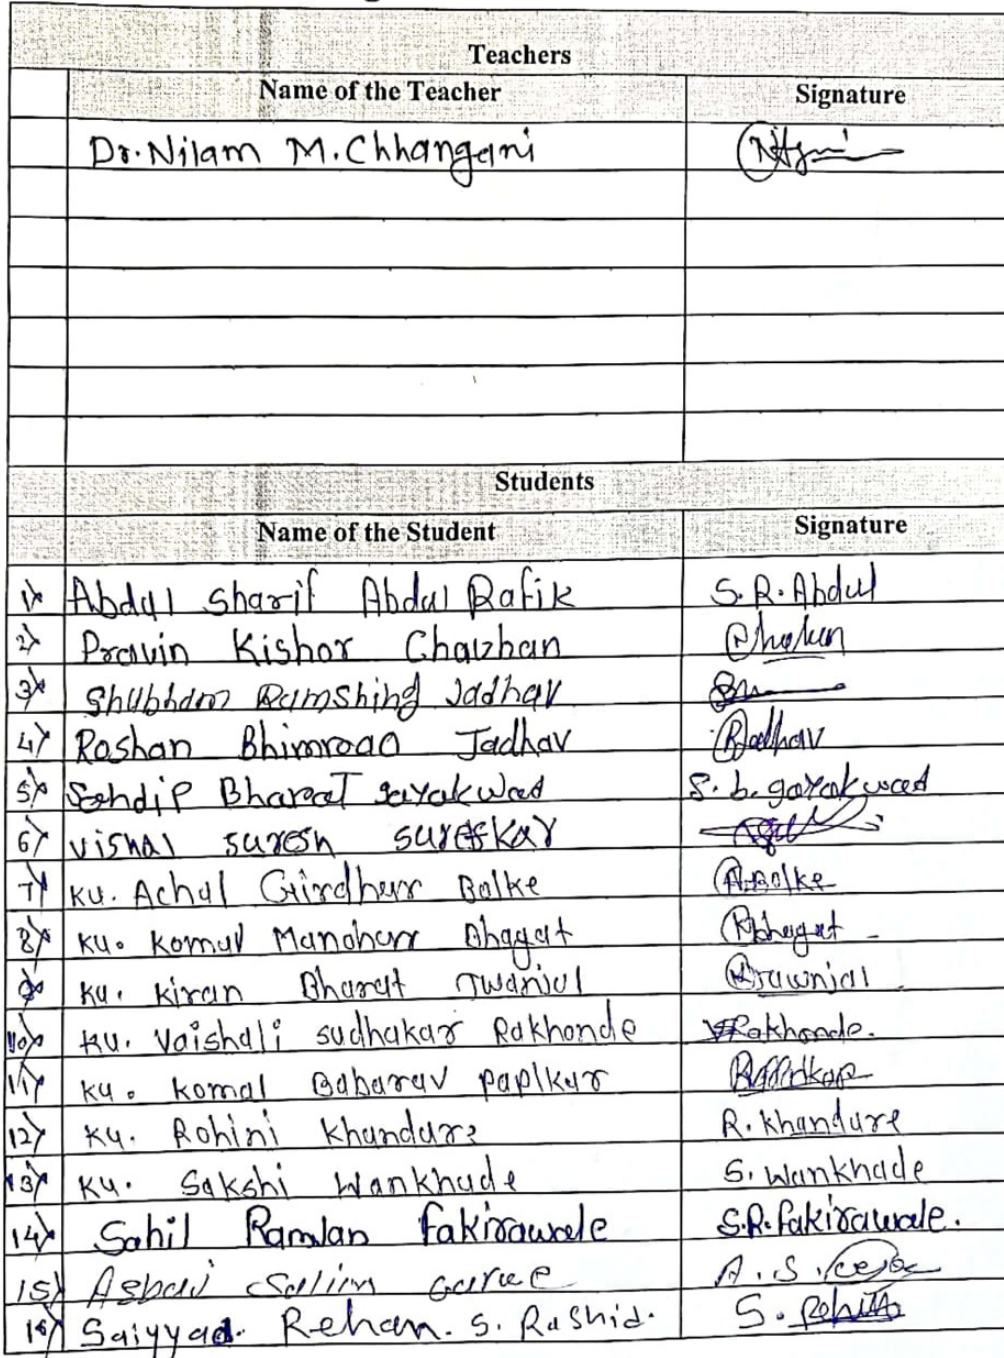 Teachers
Name of the Teacher Signature
Dr. Nilam M. Chhangani
Students
Name of the Student Signature
1) Abdul Sharif Abdul Rafik S. R. Abdul
2) Pravin Kishor Chavhan
3) Shubham Ramshing Jadhav
4) Roshan Bhimrao Jadhav RJadhav
5) Sandip Bharat gayakwad S. b. gayakwad
6) vishal suresh sureskar
7) Ku. Achal Girdhar Bolke A.Bolke
8) Ku. Komal Manohar Bhagat KBhagat
9) Ku. Kiran Bharat
10) Ku. Vaishali sudhakar Rakhonde VRakhonde.
11) Ku. Komal Babarav paplkar
12) Ku. Rohini Khandare R. Khandare
13) Ku. Sakshi Wankhade S. Wankhade
14) Sahil Ramjan fakirawale S.R. fakirawale.
15) Salim A. S.
16) Saiyyad. Rehan. S. Rashid. S.